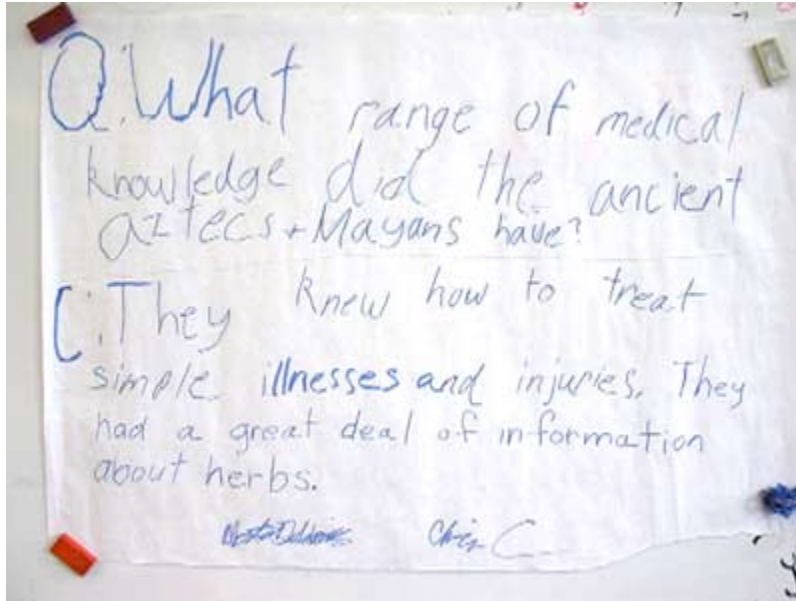 Q: What range of medical
knowledge did the ancient
aztecs + Mayans have?
C: They knew how to treat
simple illnesses and injuries. They
had a great deal of information
about herbs.
C